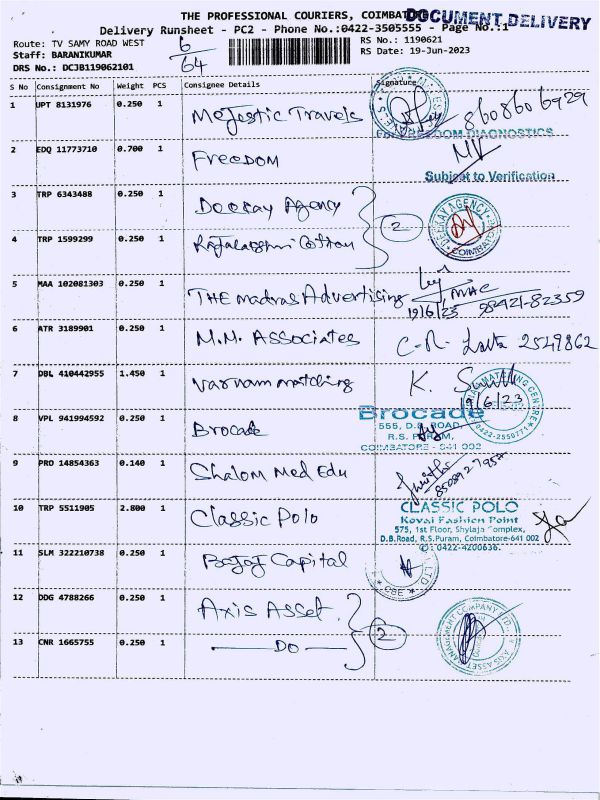 THE PROFESSIONAL COURIERS, COIMBATO
DOCUMENT DELIVERY
Delivery Runsheet - PC2 - Phone No.:0422-3505555 - Page No.:1
Route: TV SAMY ROAD WEST
6/64
RS No.: 1190621
Staff: BARANIKUMAR
RS Date: 19-Jun-2023
DRS No.: DCJB119062101
S No Consignment No Weight PCS Consignee Details Signature
1 UPT 8131976 0.250 1 Majestic Travels 8608606929
FREEDOM DIAGNOSTICS
2 EDQ 11773710 0.700 1 FREEDOM
Subject to Verification
3 TRP 6343488 0.250 1 Deekay Agency
2
DEEKAY AGENCY
COIMBATORE
4 TRP 1599299 0.250 1 Rajalakshmi Cotton
5 MAA 102081303 0.250 1 THE Madras Advertising
MAC
19/6/23 98421-82359
6 ATR 3189901 0.250 1 M.M. ASSOCIATES C-R- Latha 2549862
7 DBL 410442955 1.450 1 Varnam matching K.
19/6/23
MATCHING CENTRE
0422-2550771
8 VPL 941994592 0.250 1 BROCADE
Brocade
555, D.B. ROAD,
R.S. PURAM,
COIMBATORE - 641 002
9 PRO 14854363 0.140 1 Shalom Med Edu
10 TRP 5511905 2.800 1 Classic Polo
CLASSIC POLO
Kovai Fashion Point
575, 1st Floor, Shylaja Complex,
D.B.Road, R.S.Puram, Coimbatore-641 002
✆: 0422-4200636.
11 SLM 322210738 0.250 1 Bajaj Capital
LTD
CBE
12 DDG 4788266 0.250 1 Axis Asset
2
AXIS ASSET MANAGEMENT COMPANY LTD.
13 CNR 1665755 0.250 1 DO